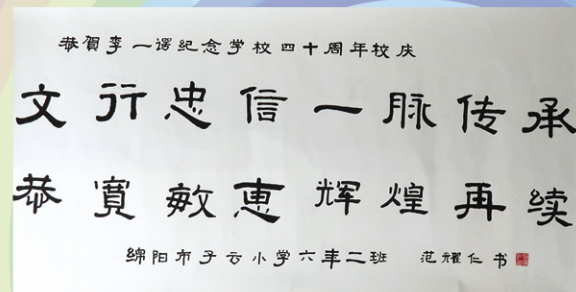 恭賀李一谔纪念学校四十周年校庆
文行忠信一脉传承
恭寬敏惠辉煌再续
绵阳市子云小学六年二班 范耀仁 书